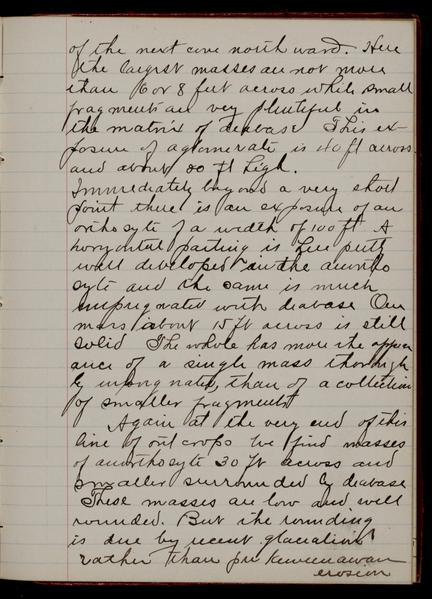 of the next cove northward. Here
the largest masses are not more
than 6 or 8 feet across while small
fragments are very plentiful in
the matrix of diabase This ex-
posure of aglomerate is 40 ft across
and about 20 ft high.
Immediately beyond a very short
point there is an exposure of an
orthosyte of a width of 100 ft. A
horyontal parting is here pretty
well developed in the anortho
syte and the same is much
impregnated with diabase One
mass about 15 ft across is still
solid The whole has more the appear
ance of a single mass thorough
ly impregnated, than of a collection
of smaller fragments
Again at the very end of this
line of outcrops we find masses
of anorthosyte 30 ft across and
smaller surrounded by diabase
These masses are low and well
rounded. But the rounding
is due by recent glaciation
rather than pre Keweenawan
erosion